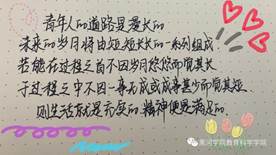 青年人的道路是漫长的
未来的岁月将由短短长长的一系列组成
若能在过程之首不因岁月悠悠而觉其长
于过程之中不因一事无成或成事甚少而觉其短
则生活就是充实的 精神便是满足的.
黑河学院教育科学学院